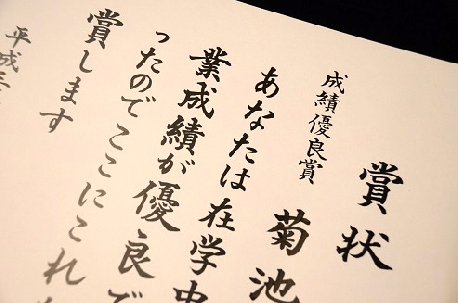 賞状
成績優良賞
菊池
あなたは在学中
業成績が優良で
ったのでここにこれ
賞します
平成